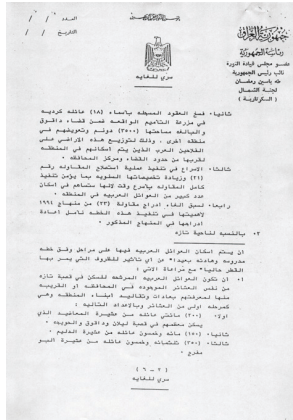 بسم الله الرحمن الرحيم
جمهورية العراق
رئاسة الجمهورية
عضو مجلس قيادة الثورة
نائب رئيس الجمهورية
طه ياسين رمضان
لجنة الشمال
(السكرتارية)
العدد /
التاريخ /
سري للغايه
ثانيا- فسخ العقود المبسطه بأسماء (١٨) عائله كرديه
في مزرعة التأميم الواقعه ضمن قضاء داقوق
والبالغه مساحتها (٣٥٠٠) دونم وتعويضهم في
منطقه أخرى، وذلك لتوزيع هذه الاراضي على
الفلاحين العرب الذين يتم اسكانهم في المنطقه
لقربها من حدود القضاء ومركز المحافظه.
ثالثا- الاسراع في تنفيذ عملية استصلاح المقاوله رقم
(٢١) وزيادة تخصيصاتها السنويه بما يؤمن تنفيذ
كامل المقاوله بأسرع وقت لانها ستساهم في اسكان
عدد كبير من العوائل العربيه في المنطقه
رابعا- لسبق الغاء ادراج مقاولة (٢٣) من منهاج ١٩٩٤
لاهميتها في تنفيذ هذه الخطه نامل اعادة
ادراجها في المنهاج المذكور.
٣- بالنسبه لناحية تازه
أن يتم اسكان العوائل العربيه فيها على مراحل وفق خطه
مدروسه وهادئه بعيدا" عن أي تأثير للظروف التي يمر بها
القطر حاليا" مع مراعاة الاتي:
أ- أن تكون العوائل العربيه المرشحه للسكن في قصبة تازه
من نفس العشائر الموجوده في المحافظه أو القريبه
منها لمعرفتهم بعادات وتقاليد أبناء المنطقه وهي
كمرحله اولى من العشائر وبالاعداد التاليه:
اولا- (٢٠٠) مائتي عائله من عشيرة
يسكن معظمهم في قصبة ليلان وداقوق والحويجه
ثانيا- (١٥٠) مائه وخمسون عائله من عشيرة الدليم
ثالثا- (٣٥٠) ثلثمائه وخمسون عائله من عشيرة البو
مفرج
(٢ - ٦)
سري للغايه